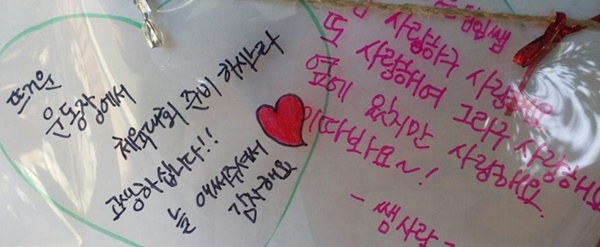 뜨거운
운동장에서
체육대회 준비 하시랴
고생하십니다!!
늘 애써주셔서
감사해요
사랑하구 사랑해요
또 사랑해여 그리구 사랑해요
표에 없지만 사랑해요
이따봐요~!
- 쌤사랑 -